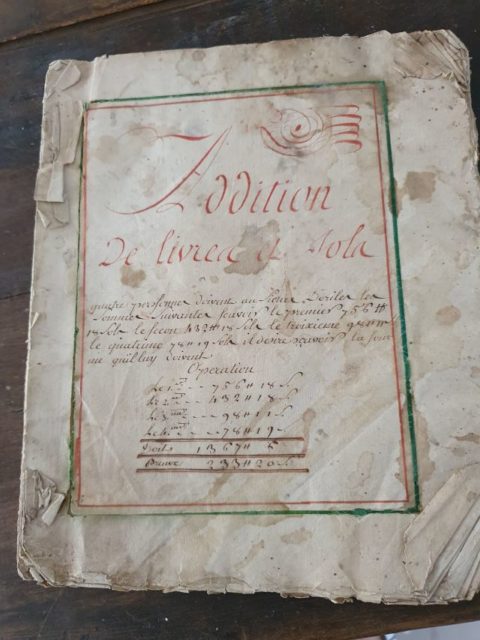 Addition
De livres et Sols
quatre personnes doivent au sieur les
sommes suivantes scavoir le premier 756 ₶
18 sols le secon 432 ₶ 18 sols le troixieme 98 ₶ 11
le quatrime 78 ₶ 19 sols il desire scavoir la som
me quil luy doivent
Operation
Le 1er -- 756 ₶ 18 s
Le 2me -- 432 ₶ 18 s
Le 3me -- 98 ₶ 11 s
Le 4me -- 78 ₶ 19 s
1367 ₶ 6
Preuve 233 ₶ 20 s